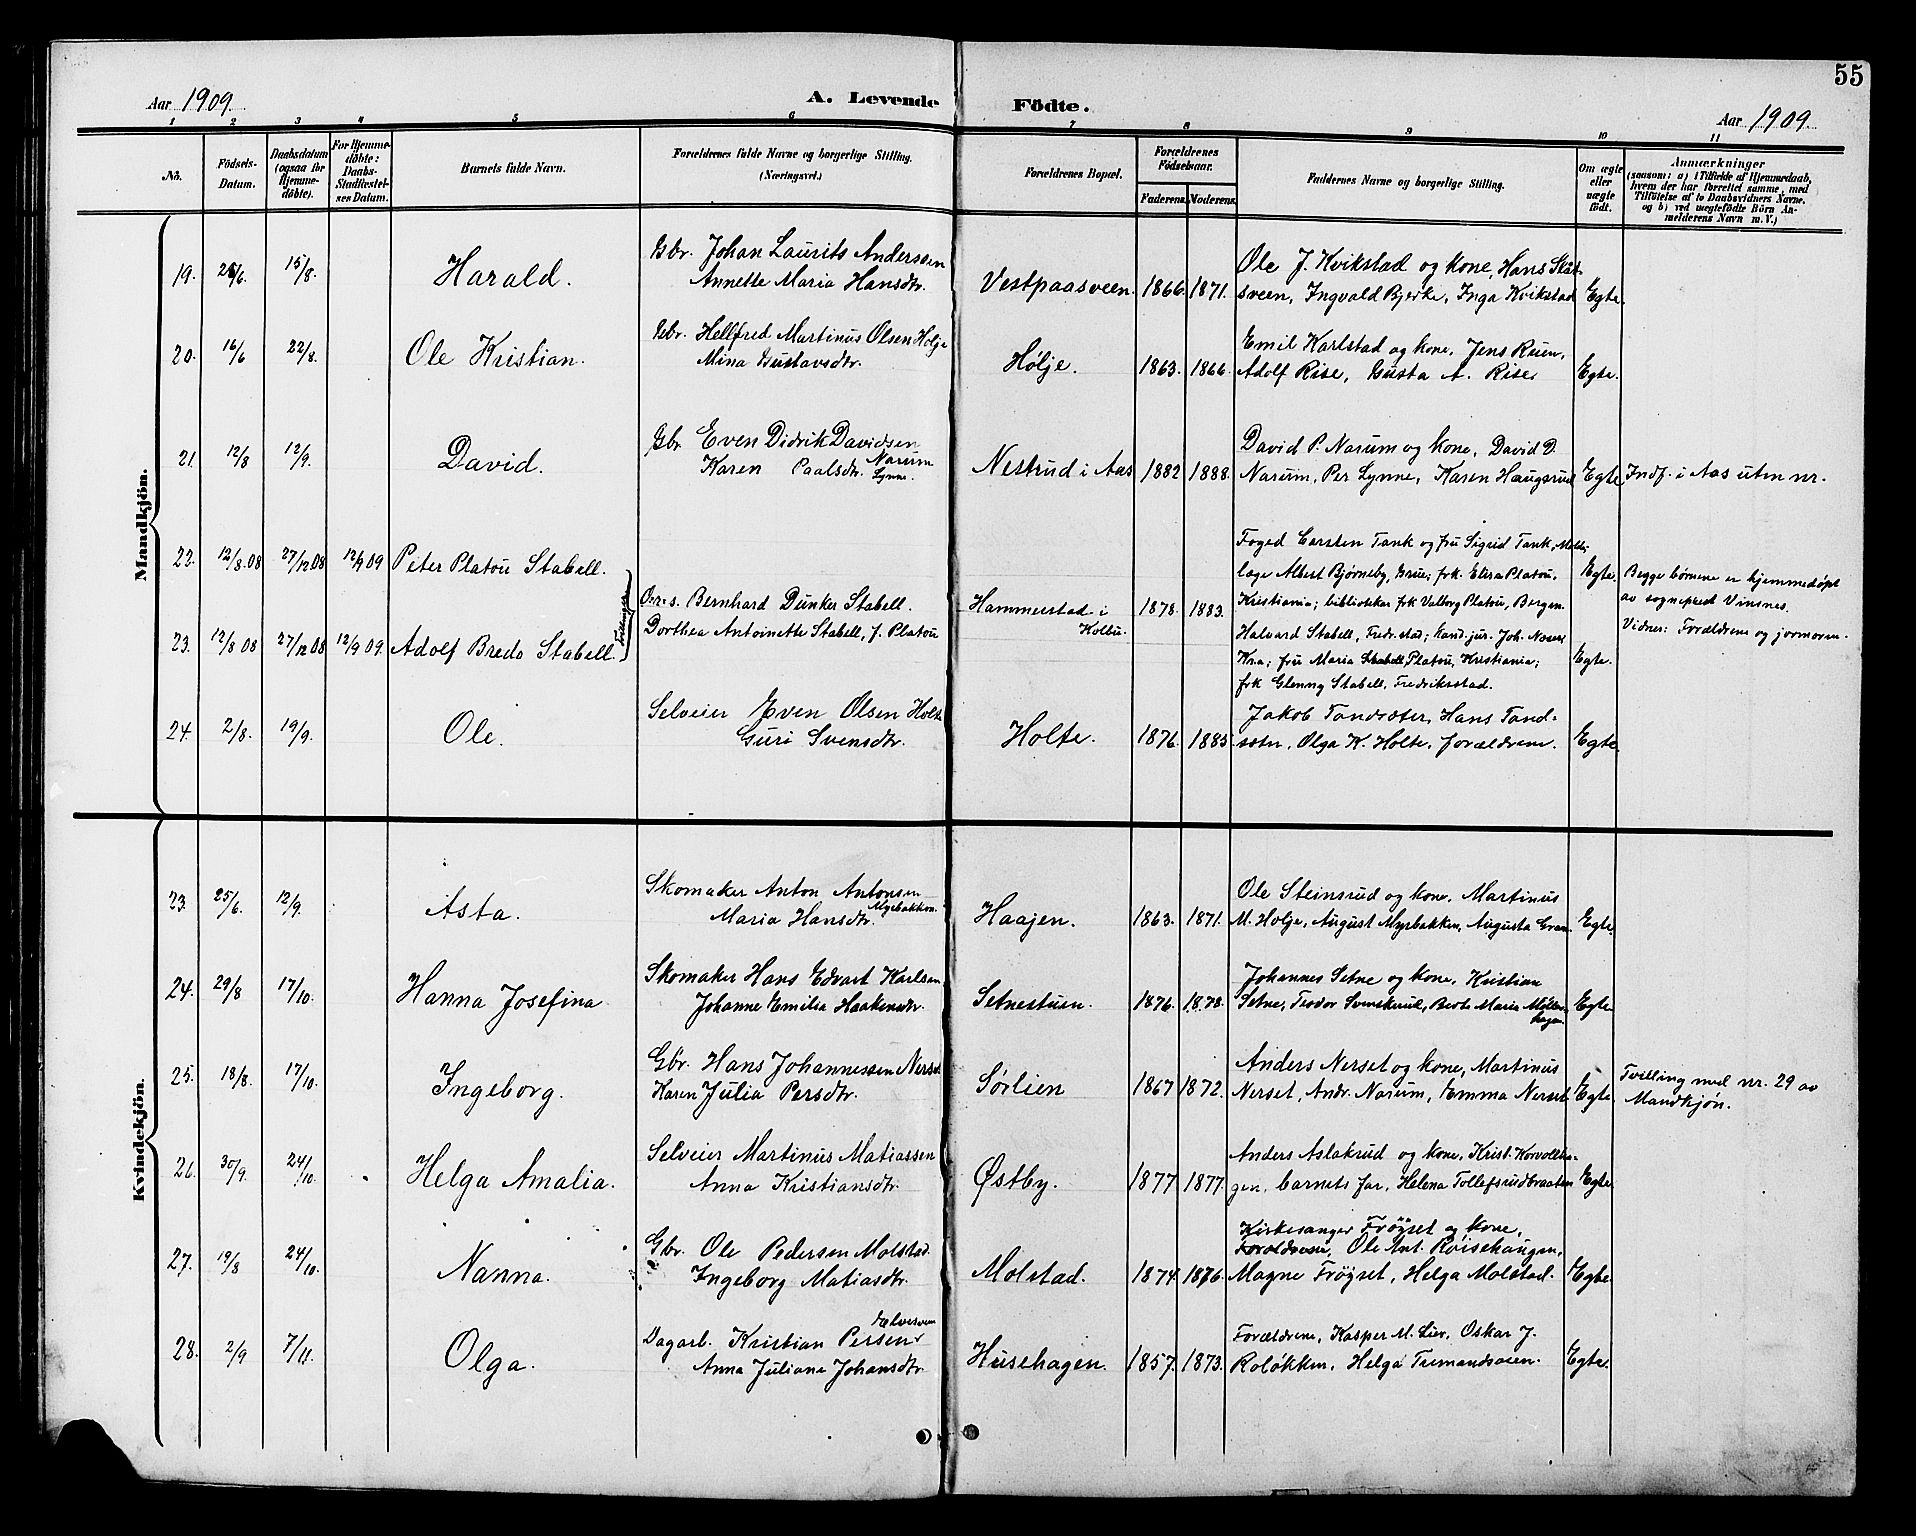 55
Aar 1909.
A. Levende Födte.
Aar 1909.
1 2 3 4 5 6 7 8 9 10 11
No.
Födsels-Datum.
Daabsdatum (ogsaa for Hjemmedöbte).
For Hjemmedöbte: Daabs-Stadfæstelses Datum.
Barnets fulde Navn.
Forældrenes fulde Navne og borgerlige Stilling. (Næringsvei.)
Forældrenes Bopæl.
Forældrenes Födselsaar.
Faderens. Moderens.
Faddernes Navne og borgerlige Stilling.
Om ægte eller uægte födt.
Anmærkninger
(saasom: a) i Tilfælde af Hjemmedaab, hvem der har forrettet samme, med Tilföielse af to Daabsvidners Navne, og b) ved uægtefödte Börn Anmelderens Navn m. V.)
Mandkjön.
19. 15/8. Harald. Gbr. Johan Laurits Anderssen
Annette Maria Hansdtr. Vestpaasveen. 1866. 1871. Ole J. Kvikstad og kone, Hans Slåt-
sveen, Ingvald Bjerke, Inga Kvikstad Egte.
20. 16/6 22/8. Ole Kristian. Gbr. Hellfred Martinus Olsen Holje
Mina Gustavsdtr. Hølje. 1863. 1866. Emil Karlstad og kone, Jens Ruen,
Adolf Rise, Gusta A. Rise. Egte.
21. 12/8 12/9. David. Gbr Even Didrik Davidsen Narum
Karen Paalsdtr. Lynne. Nestrud i Aas 1882 1888. David P. Narum og kone, David D.
Narum, Per Lynne, Karen Haugsrud Egte Indf. i Aas uten nr.
22. 12/8.08 27/12 08 12/9 09 Peter Platou Stabell.
23. 12/8 08 27/12 08 12/9 09. Adolf Bredo Stabell. Tvillinger
O.r.s. Bernhard Dunker Stabell.
Dorthea Antoinette Stabell, f. Platou
Hammerstad i Kolbu. 1878. 1883.
Foged Carsten Tank og fru Sigrid Tank,
læge Albert Bjørneby, Grue; frk. Elisa Platou,
Kristiania; bibliotekar frk Valborg Platou, Bergen
Halvard Stabell, Fredr.stad; kand. jur. Joh.
Kra; fru Maria Stabell Platou, Kristiania;
frk Glenny Stabell, Fredriksstad.
Egte. Egte.
Begge børnene er hjemmedøpt
av sogneprest Vinsnes.
Vidner: Forældrene og jormoren.
24. 2/8. 19/9. Ole. Selveier Even Olsen Holte
Guri Svensdtr. Holte. 1876. 1885. Jakob Tandsæter, Hans Tand-
sætr, Olga K. Holte, forældrene. Egte.
Kvindekjön.
23. 25/6. 12/9. Asta. Skomaker Anton Antonsen Myrbakken.
Maria Hansdtr. Haajen. 1863. 1871. Ole Steinsrud og kone, Martinus
M. Holje, August Myrbakken, Augusta Gran Egte.
24. 29/8 17/10. Hanna Josefina. Skomaker Hans Edvart Karlsen
Johanne Emilie Haakensdtr. Setnestuen. 1876. 1878. Johannes Setne og kone, Kristian
Setne, Teodor Svenskerud, Berte Marie Møllerhagen. Egte
25. 18/8. 17/10. Ingeborg. Gbr. Hans Johannessen Nerset
Karen Julia Persdtr. Sørlien 1867 1872. Anders Nerset og kone, Martinus
Nerset, Andr. Narum, Emma Nerset. Egte Tvilling med nr. 29 av
Mandkjøn.
26. 30/9. 24/10. Helga Amalia. Selveier Martinus Matiassen
Anna Kristiansdtr. Østby. 1877 1877. Anders Aslakrud og kone, Krist. Korvollha-
gen, barnets far, Helena Tollefsrudbraaten Egte.
27. 19/8 24/10. Nanna. Gbr. Ole Pedersen Molstad.
Ingeborg Matiasdtr. Molstad. 1874. 1876. Kirkesanger Frøyset og kone,
Forældrene, Ole Ant. Røisehaugen,
Magne Frøyset, Helga Molstad. Egte.
28. 2/9 7/11. Olga. Dagarb. Kristian Persen
Anna Juliane Johansdtr. Husehagen. 1857. 1873. Forældrene, Kasper M. Lier, Oskar J.
Roløkken, Helga Egte.